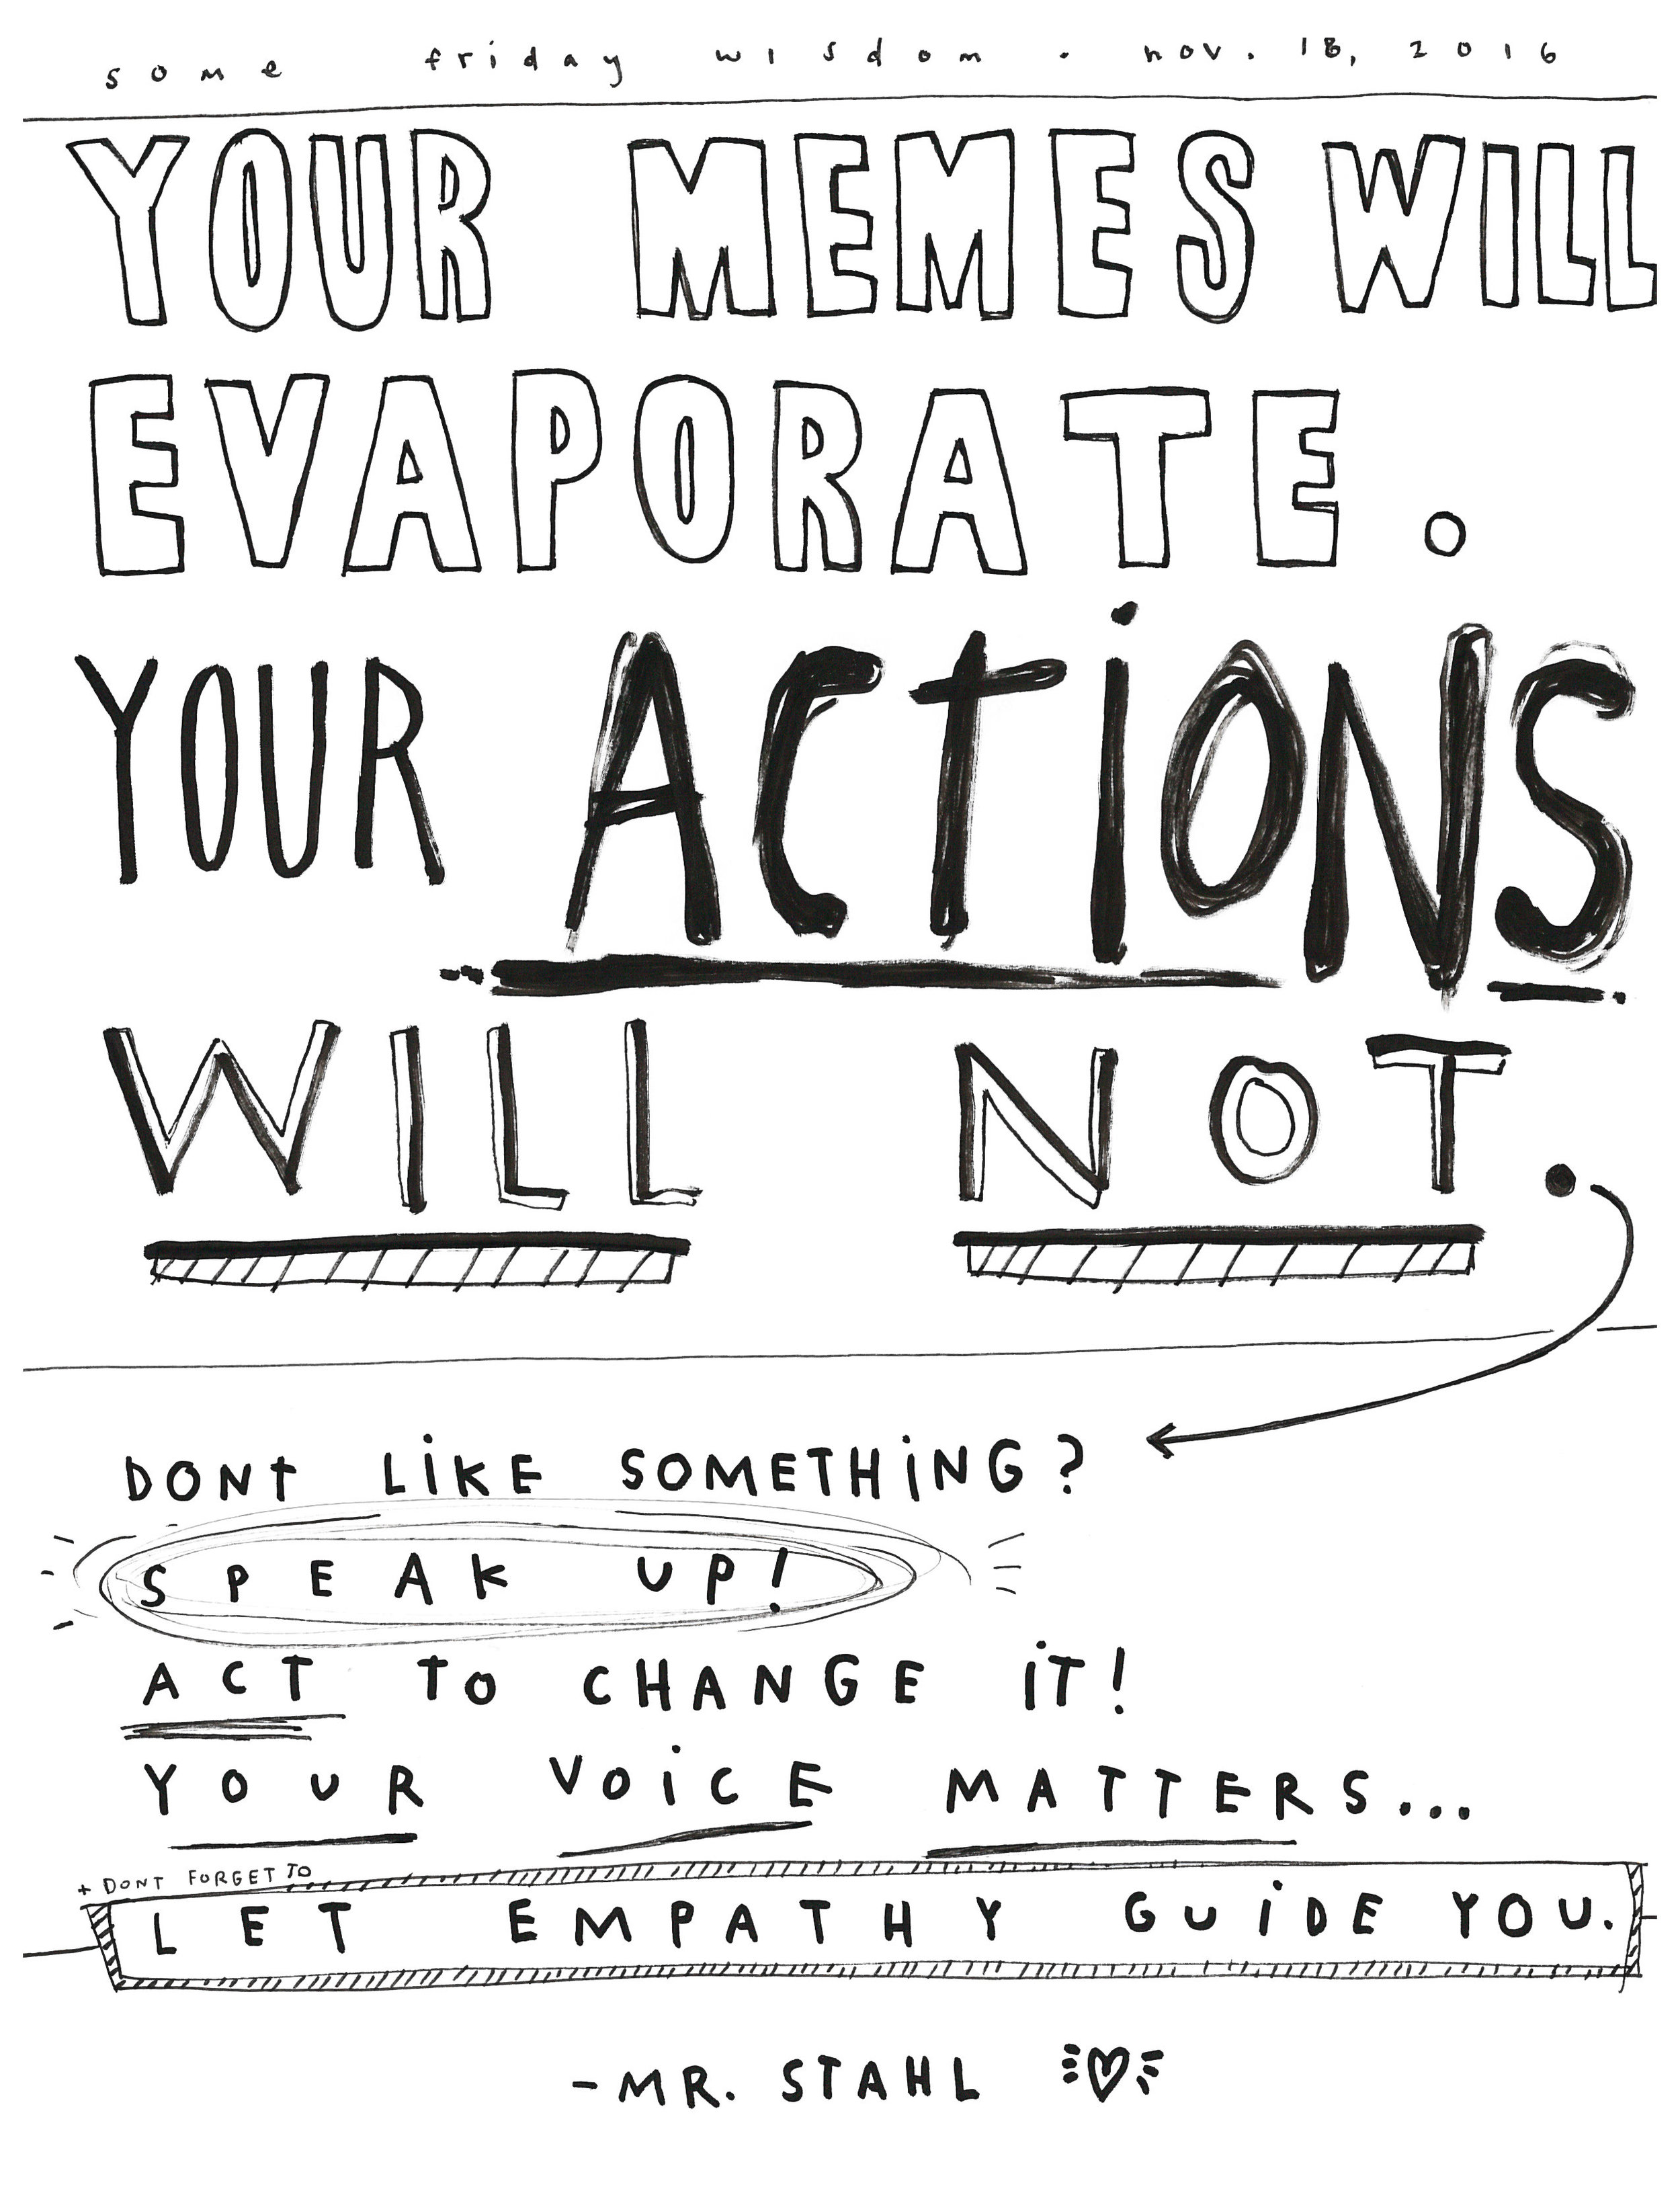 some friday wisdom · nov. 18, 2016
YOUR MEMES WILL
EVAPORATE.
YOUR ACTiONS
WILL NOT.
DONT LiKE SOMETHiNG?
SPEAK UP!
ACT To CHANGE iT!
YOUR VOiCE MATTERS...
+ DONT FORGET TO
LET EMPATHY GUiDE YOU.
-MR. STAHL